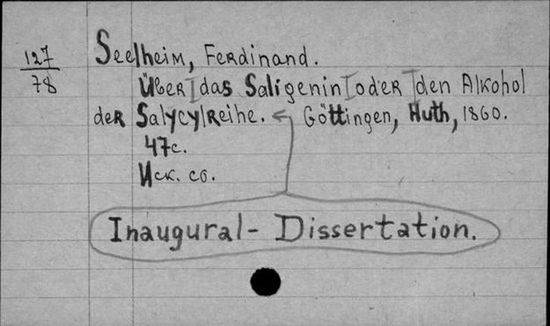 127
78
Seelheim, Ferdinand.
Über das Saligenin oder den Alkohol
der Salycylreihe. Göttingen, Huth, 1860.
47c.
Иск. со.
Inaugural-Dissertation.